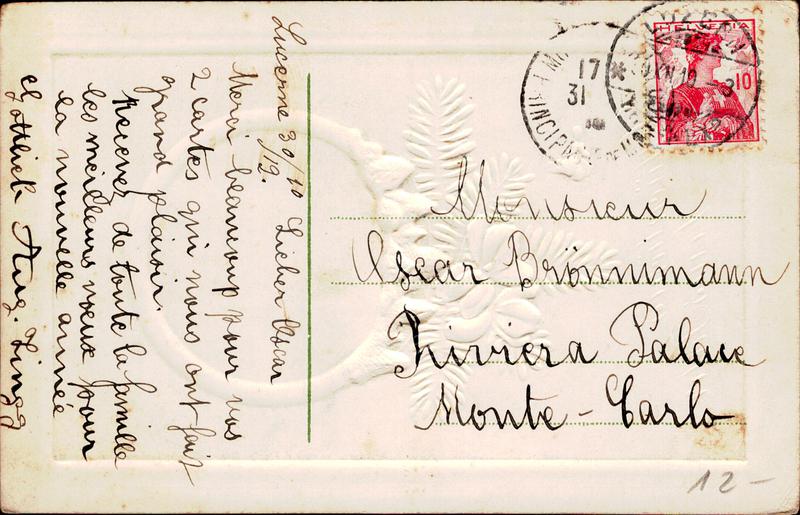 Lucerne 30/12. 10 Licher Oscar
Merci beaucoup pour vos
2 cartes qui nous ont fait
grand plaisir.
Recevez de toute la famille
les meilleurs vœux pour
la nouvelle année
Gottlieb Aug. Lingg
HELVETIA
10
17
31
Monsieur
Oscar Brönnimann
Riviera Palace
Monte-Carlo
12-